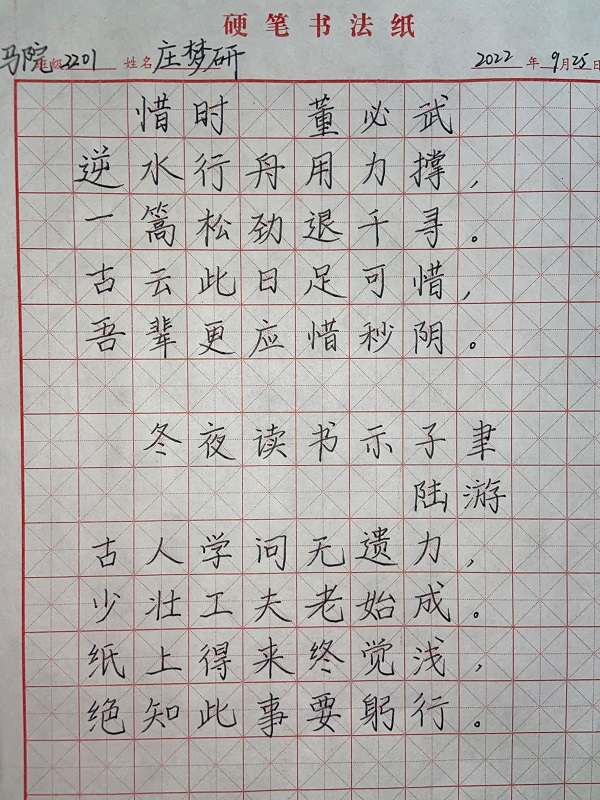 硬笔书法纸
马院 班级 2201 姓名 庄梦研 2022 年 9 月 25 日
惜时 董必武
逆水行舟用力撑，
一篙松劲退千寻。
古云此日足可惜，
吾辈更应惜秒阴。
冬夜读书示子聿
陆游
古人学问无遗力，
少壮工夫老始成。
纸上得来终觉浅，
绝知此事要躬行。